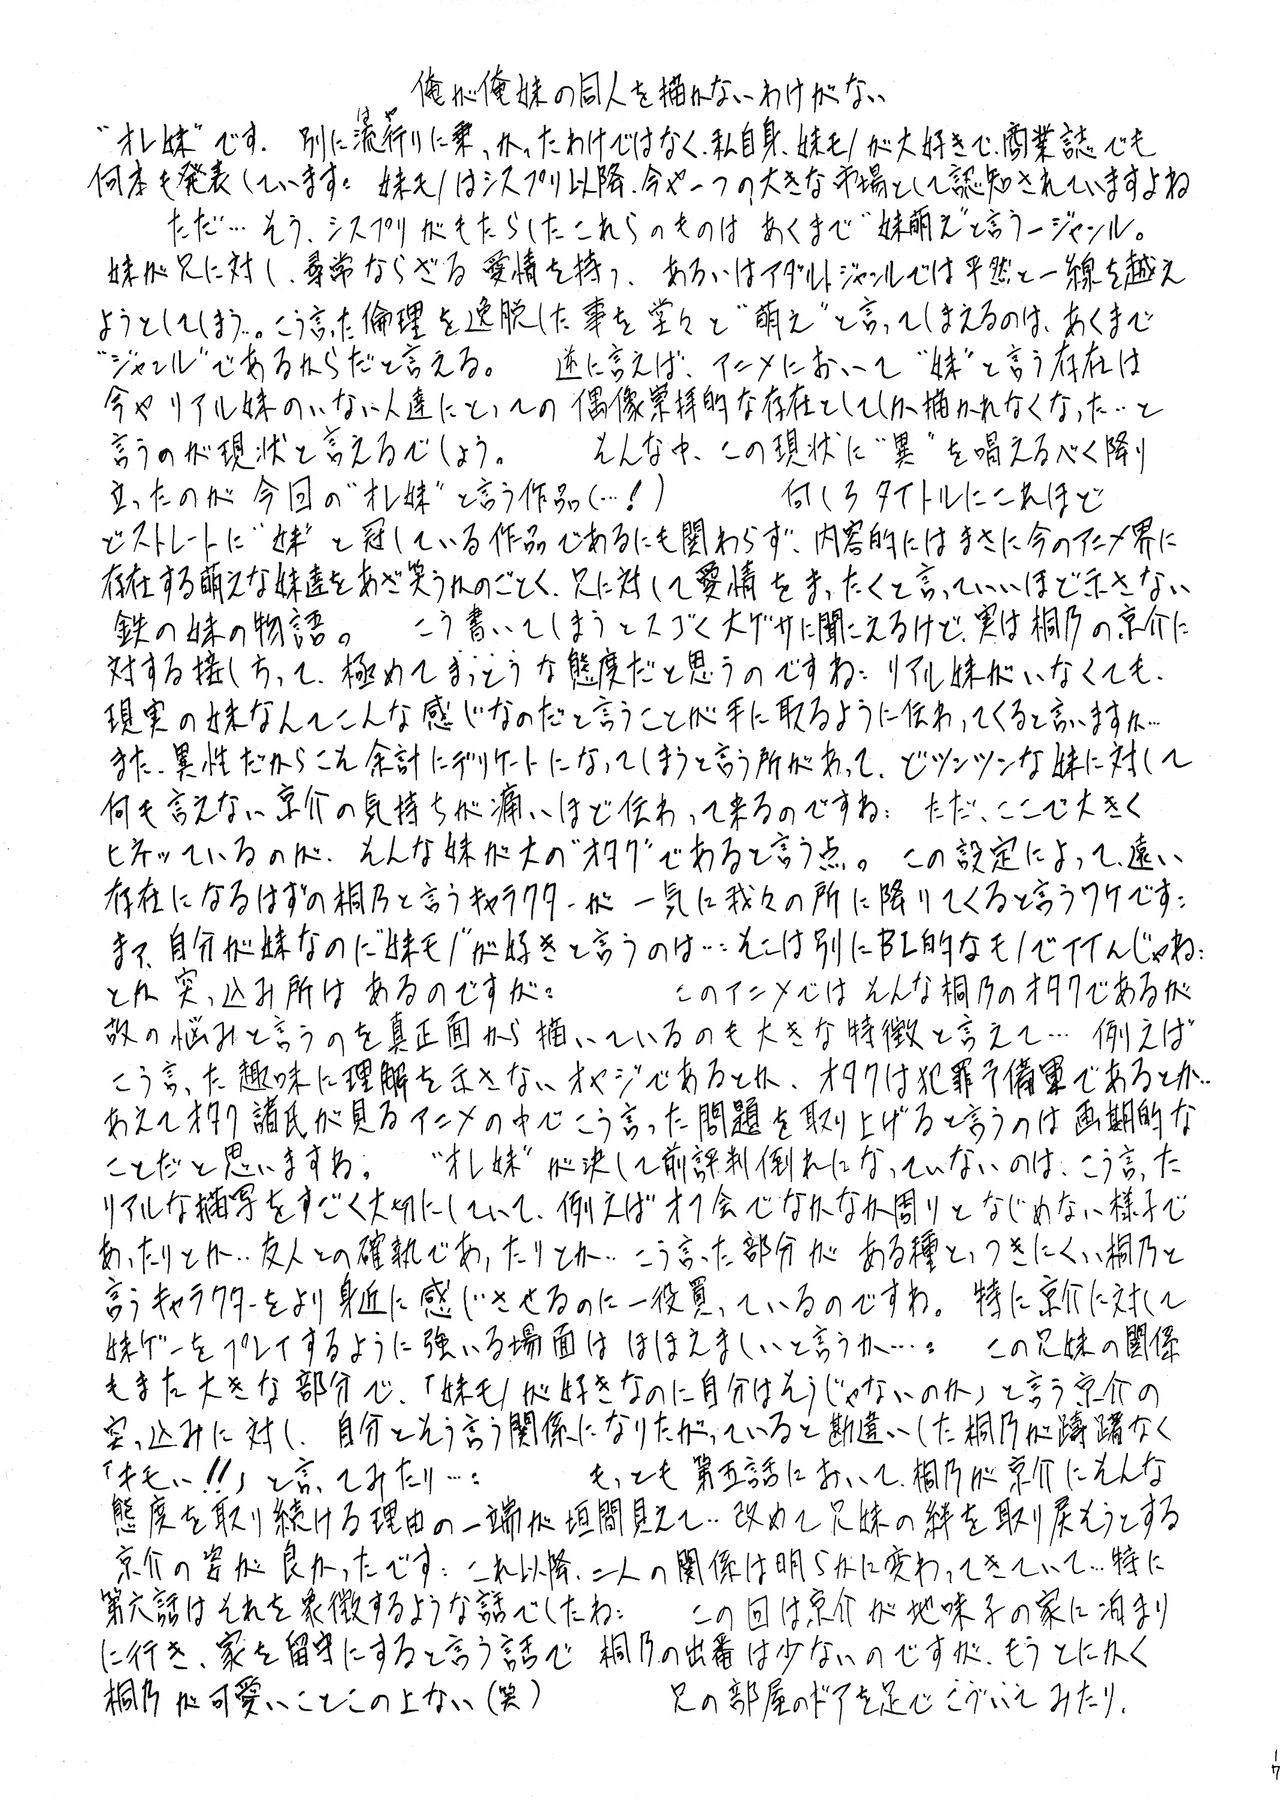 俺が俺妹の同人を描かないわけがない
はや
"オレ妹"です. 別に流行りに乗っかったわけではなく、私自身、妹モノが大好きで、商業誌でも
何本も発表しています: 妹モノはシスプリ以降、今や一つの大きな市場として認知されていますよね
ただ… そう、シスプリがもたらしたこれらのものは あくまで"妹萌え"と言う一ジャンル。
妹が兄に対し、尋常ならざる愛情を持つ、 あるいはアダルトジャンルでは平然と一線を越え
ようとしてしまう…。こう言った倫理を逸脱した事を堂々と"萌え"と言ってしまえるのは、あくまで
"ジャンル"であるからだと言える。 逆に言えば、アニメにおいて"妹"と言う存在は
今やリアル妹のいない人達にとっての偶像崇拝的な存在としてしか描かれなくなった…と
言うのが現状と言えるでしょう。 そんな中、この現状に"異"を唱えるべく降り
立ったのが 今回の"オレ妹"と言う作品(…!) 何しろタイトルにこれほど
どストレートに"妹"と冠している作品であるにも関わらず、内容的にはまさに今のアニメ界に
存在する萌えな妹達をあざ笑うかのごとく、兄に対して愛情をまったくと言っていいほど示さない
鉄の妹の物語。 こう書いてしまうとスゴく大ゲサに聞こえるけど、実は桐乃の京介に
対する接し方って、極めてまっとうな態度だと思うのですね: リアル妹がいなくても、
現実の妹なんてこんな感じなのだと言うことが手に取るように伝わってくると言いますか…
また、異性だからこそ余計にデリケートになってしまうと言う所があって、どツンツンな妹に対して
何も言えない京介の気持ちが痛いほど伝わって来るのですね: ただ、ここで大きく
ヒネッているのが、そんな妹が大の"オタク"であると言う点。 この設定によって、遠い
存在になるはずの桐乃と言うキャラクターが一気に我々の所に降りてくると言うワケです:
まァ、自分が妹なのに"妹モノ"が好きと言うのは…: そこは別にBL的なモノでイイんじゃね:
とか 突っ込み所は あるのですが: このアニメでは そんな桐乃のオタクであるが
故の悩みと言うのを真正面から描いているのも大きな特徴と言えて… 例えば
こう言った趣味に理解を示さないオヤジであるとか、オタクは犯罪予備軍であるとか…
あえてオタク諸氏が見るアニメの中でこう言った問題を取り上げると言うのは画期的な
ことだと思いますね。 "オレ妹"が決して前評判倒れになっていないのは、こう言った
リアルな描写をすごく大切にしていて、例えばオフ会でなかなか周りとなじめない様子で
あったりとか‥友人との確執であったりとか‥こう言った部分がある種とっつきにくい桐乃と
言うキャラクターをより身近に感じさせるのに一役買っているのですね。 特に京介に対して
妹ゲーをプレイするように強いる場面はほほえましいと言うか…: この兄妹の関係
もまた大きな部分で、「妹モノが好きなのに自分はそうじゃないのか」と言う京介の
突っ込みに対し、自分とそう言う関係になりたがっていると勘違いした桐乃が躊躇なく
「キモい!!」と言ってみたり…: もっとも第五話において、桐乃が京介にそんな
態度を取り続ける理由の一端が垣間見えて‥改めて兄妹の絆を取り戻そうとする
京介の姿が良かったです: これ以降、二人の関係は明らかに変わってきていて…特に
第六話はそれを象徴するような話でしたね: この回は京介が地味子の家に泊まり
に行き、家を留守にすると言う話で 桐乃の出番は少ないのですが、もうとにかく
桐乃が可愛いことこの上ない(笑) 兄の部屋のドアを足でこづいてみたり、
17